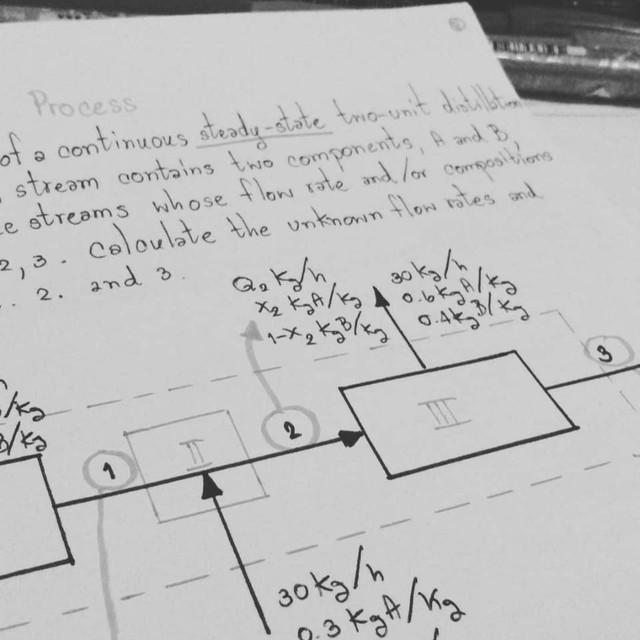 Process
of a continuous steady-state two-unit distillation
stream contains two components, A and B,
streams whose flow rate and/or compositions
2, 3. Calculate the unknown flow rates and
2. and 3.
Q2 kg/h
x2 kgA/kg
1-x2 kgB/kg
30 kg/h
0.6 kgA/kg
0.4 kgB/kg
3
/kg
/kg
1
II
2
III
30 kg/h
0.3 kgA/kg